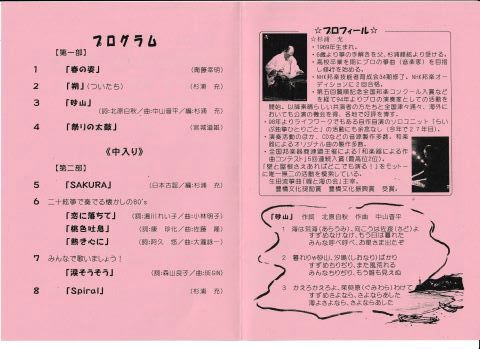 プログラム
【第一部】
1 「春の姿」 (衛藤幸明)
2 「朔」(ついたち) (杉浦 充)
3 「砂山」
(詞:北原白秋／曲:中山晋平／編:杉浦 充)
4 「祭りの太鼓」 (宮城道雄)
《中入り》
【第二部】
5 「SAKURA」 (日本古謡／編:杉浦 充)
6 二十絃箏で奏でる懐かしの80's
「恋に落ちて」 (詞:湯川れい子／曲:小林明子)
「桃色吐息」 (詞:康 珍化／曲:佐藤 隆)
「熱き心に」 (詞:阿久 悠／曲:大瀧詠一)
7 みんなで歌いましょう！
「涙そうそう」 (詞:森山良子／曲:BEGIN)
8 「Spiral」 (杉浦 充)
☆プロフィール☆
☆杉浦 充
・1969年生まれ。
・6歳より箏の手解きを父、杉浦
より受ける。
・高校卒業を期にプロの箏曲(音楽家)を目指
し修行を始める。
・NHK邦楽技能者育成会34期修了。NHK邦楽オー
ディションに2回合格。
・第五回賢順記念全国邦楽コンクール入賞など
を経て94年よりプロの演奏家としての活動を
開始。以降素晴らしい共演者の方たちと全国津々浦々、海外
においても公演の機会を得、各地で好評を博す。
・98年よりライフワークでもある自作自演のソロユニット「らい
ぶ四季ひとりごと」の活動にも余念なし(今年で27年目)。
・演奏活動のほか、CDなどの音源製作多数。和楽
器によるオリジナル曲の製作多数。
・全国邦楽器商連盟主催による「和楽器による作
曲コンテスト」5回連続入賞(最高位2位)。
「壁と屋根さえあればどこでも演る！」をモットー
に唯一無二の活動を模索している。
生田流箏曲「蝶と海の会」主宰。
豊橋文化奨励賞 豊橋文化振興賞 受賞。
「砂山」 作詞 北原白秋 作曲 中山晋平
1 海は荒海(あらうみ)、向こうは佐渡(さど)よ
すずめなけなけ、もう日は暮れた
みんな呼べ呼べ、お星さま出たぞ
2 暮れりゃ砂山、汐鳴(しおなり)ばかり
すずめちりぢり、また風荒れる
みんなちりぢり、もう誰も見えぬ
3 かえろかえろよ、茱萸原(ぐみわら)わけて
すずめさよなら、さよならあした
海よさよなら、さよならあした